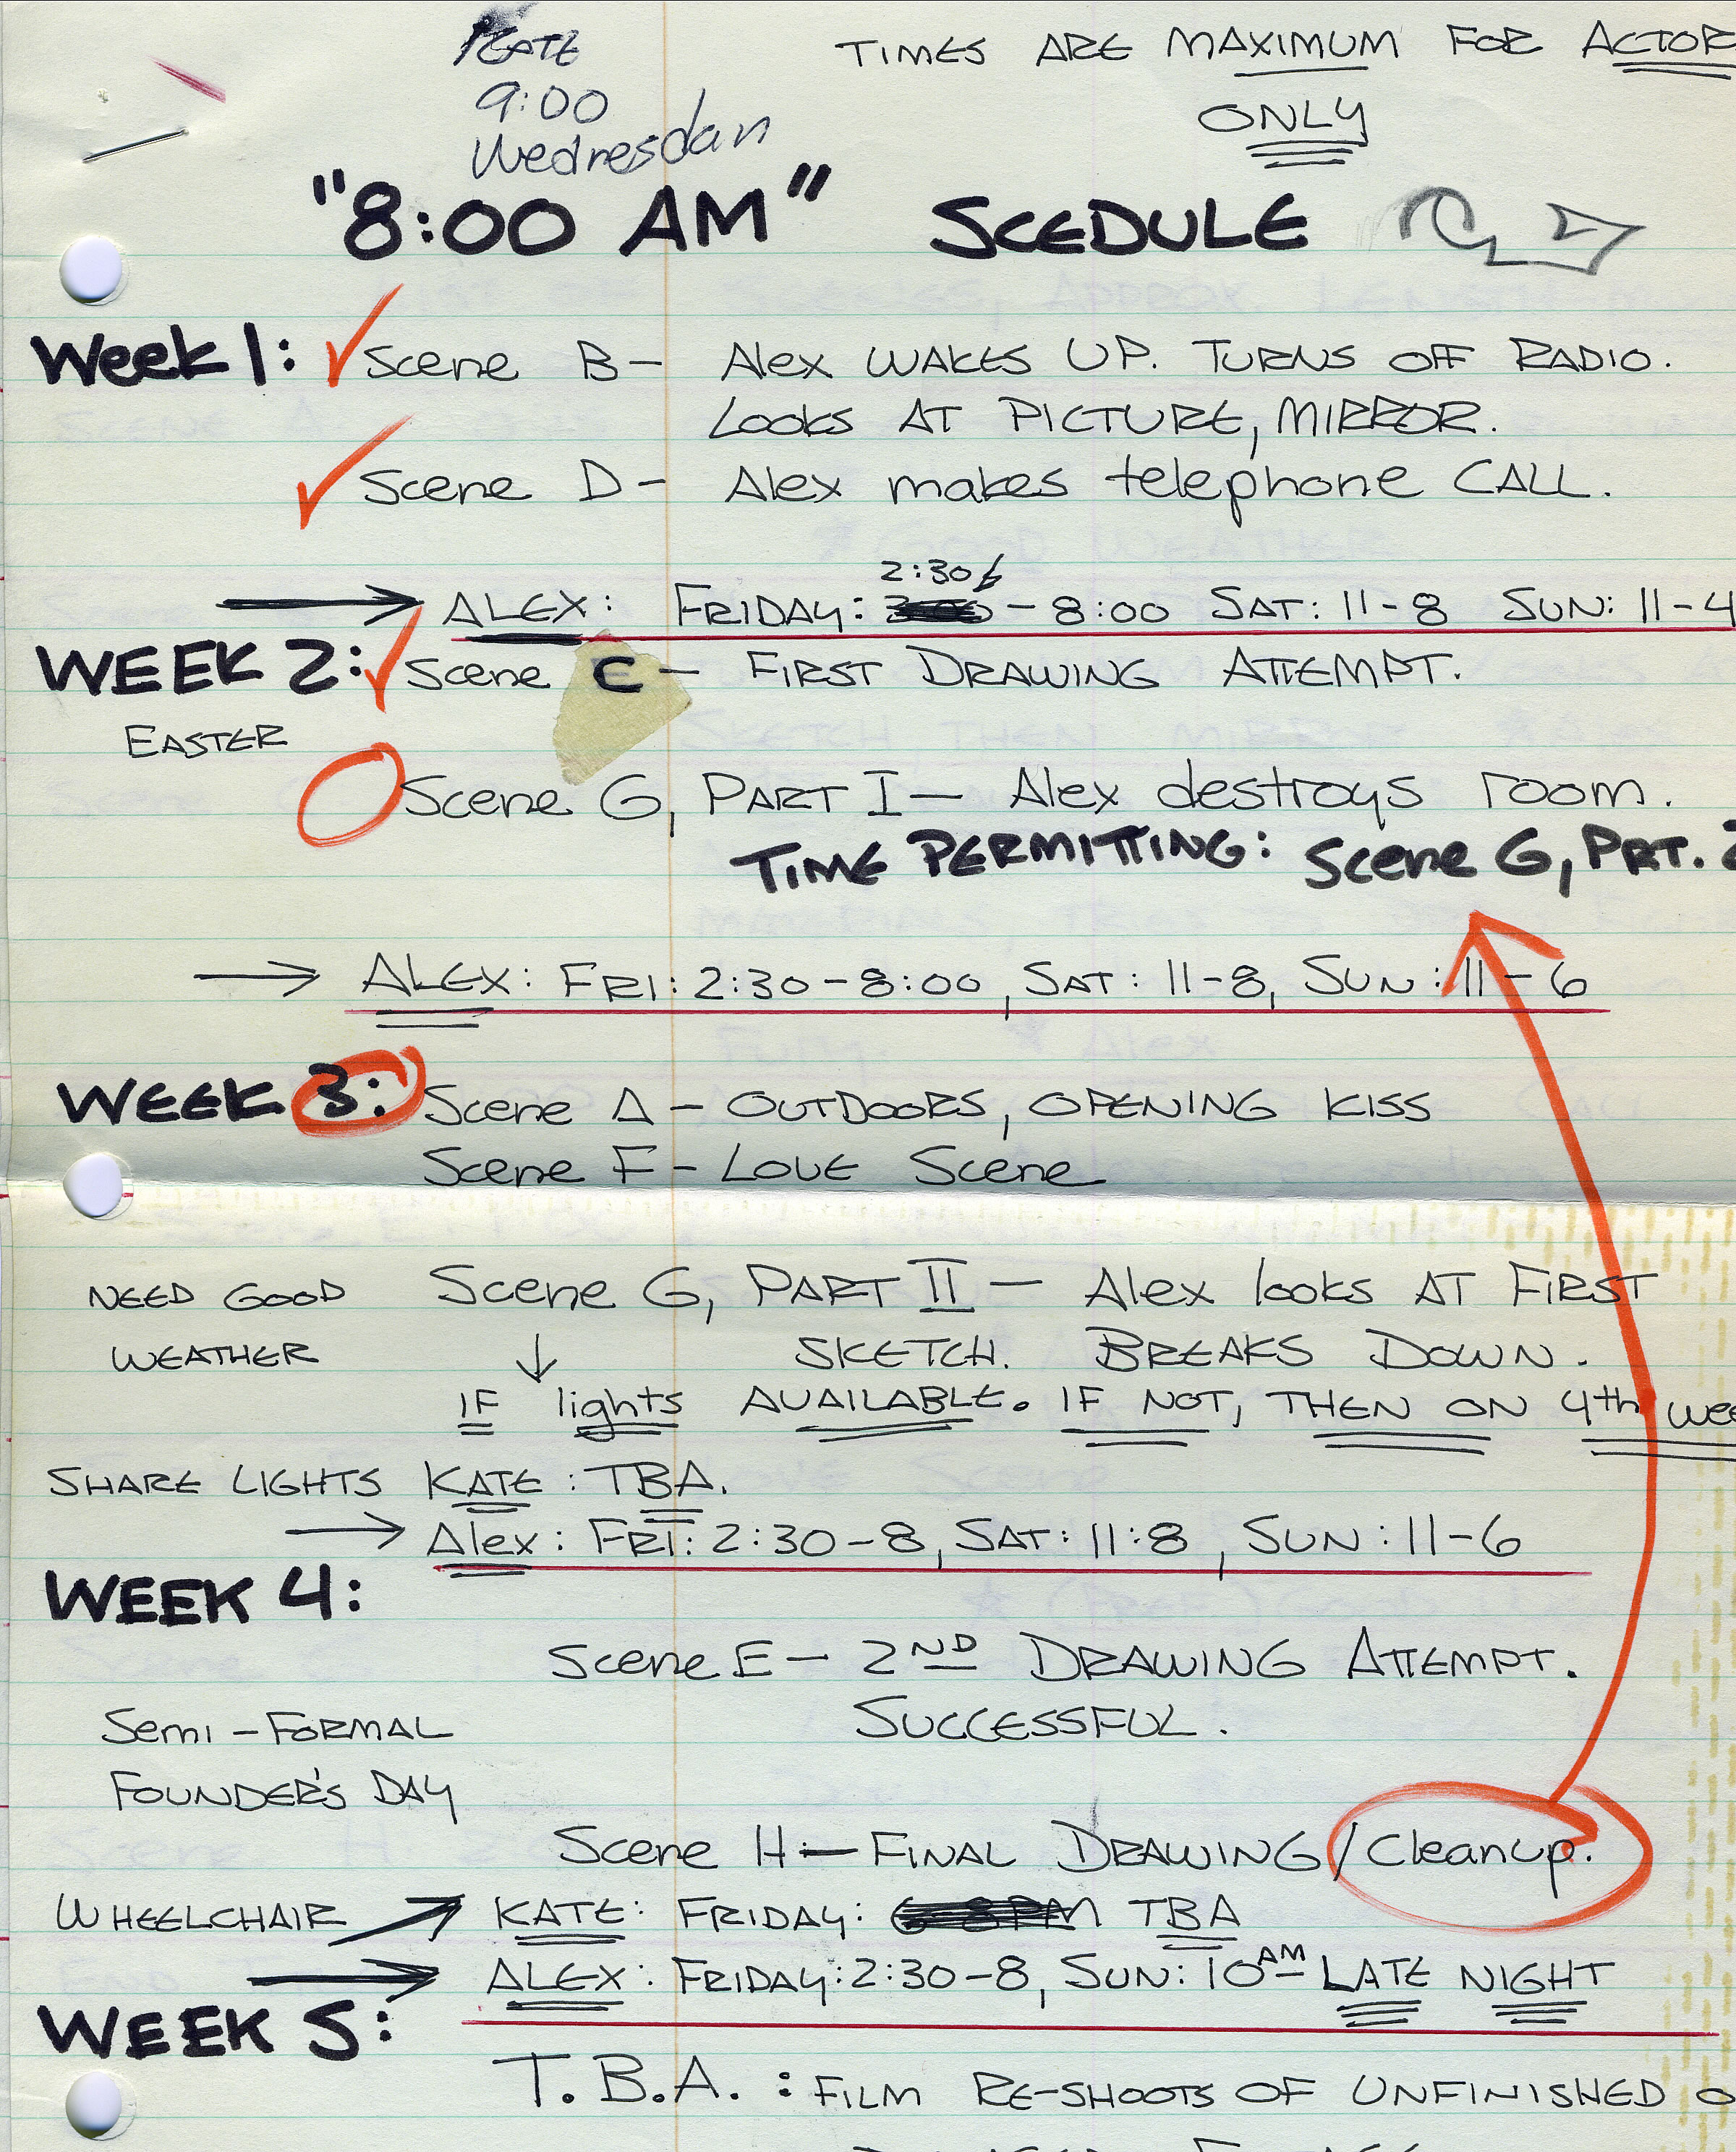 KATE
9:00
Wednesdan
TIMES ARE MAXIMUM FOR ACTOR
ONLY
"8:00 AM" SCEDULE
Week 1: Scene B- Alex WAKES UP. TURNS OFF RADIO.
LOOKS AT PICTURE, MIRROR.
Scene D- Alex makes telephone CALL.
2:30
ALEX: FRIDAY: - 8:00 SAT: 11-8 SUN: 11-4
WEEK 2: Scene C - FIRST DRAWING ATTEMPT.
EASTER
Scene G, PART I- Alex destroys room.
TIME PERMITTING: Scene G, PRT. 2
ALEX: FRI: 2:30-8:00, SAT: 11-8, SUN: 11-6
WEEK 3: Scene A - OUTDOORS, OPENING KISS
Scene F - LOVE Scene
NEED GOOD Scene G, PART II - Alex looks AT FIRST
WEATHER SKETCH. BREAKS DOWN.
IF lights AVAILABLE. IF NOT, THEN ON 4th wee
SHARE LIGHTS KATE: TBA.
Alex: FRI: 2:30-8, SAT: 11:8, SUN: 11-6
WEEK 4:
Scene E- 2ND DRAWING ATTEMPT.
SUCCESSFUL.
Semi-FORMAL
FOUNDER'S DAY
Scene H- FINAL DRAWING/Cleanup.
WHEELCHAIR KATE: FRIDAY: TBA
ALEX: FRIDAY: 2:30-8, SUN: 10AM- LATE NIGHT
WEEK 5:
T.B.A.: FILM RE-SHOOTS OF UNFINISHED